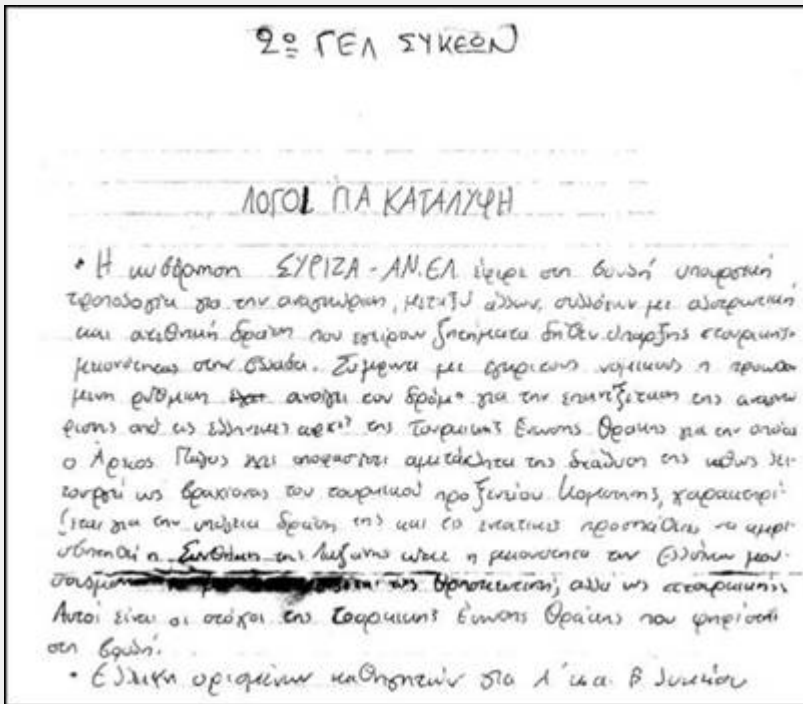 2ο ΓΕΛ ΣΥΚΕΩΝ
ΛΟΓΟΙ ΓΙΑ ΚΑΤΑΛΥΨΗ
• Η κυβέρνηση ΣΥΡΙΖΑ - ΑΝ.ΕΛ έφερε στη βουλή υπουργική
τροπολογία για την αναγνώριση, μεταξύ άλλων, συλλόγων με αλυτρωτική
και ανθεθνική δράση που εγείρουν ζητήματα δήθεν ύπαρξης τουρκικής
μειονότητας στην Ελλάδα. Σύμφωνα με έγκριτους νομικούς η προωθού
μενη ρύθμιση ανοίγει τον δρόμο για την επανεξέταση της αναγνώ
ρισης από τις ελληνικές αρχές της Τουρκικής Ένωσης Θράκης για την οποία
ο Άρειος Πάγος έχει αποφασίσει αμετάκλητα της διάλυση της καθώς λει
τουργεί ως βραχίονας του τουρκικού προξενείου Κομοτηνής, χαρακτηρί
ζεται για την υπόγεια δράση της και τις εντατικές προσπάθειες να αμφι
σβητηθεί η Συνθήκη της Λωζάνης ώστε η μειονότητα των Ελλήνων μου
ως θρησκευτική, αλλά ως τουρκική.
Αυτοί είναι οι στόχοι της Τουρκικής Ένωσης Θράκης που ψηφίστηκε
στη βουλή.
• Έλλειψη ορισμένων καθηγητών για Α' και Β λυκείου